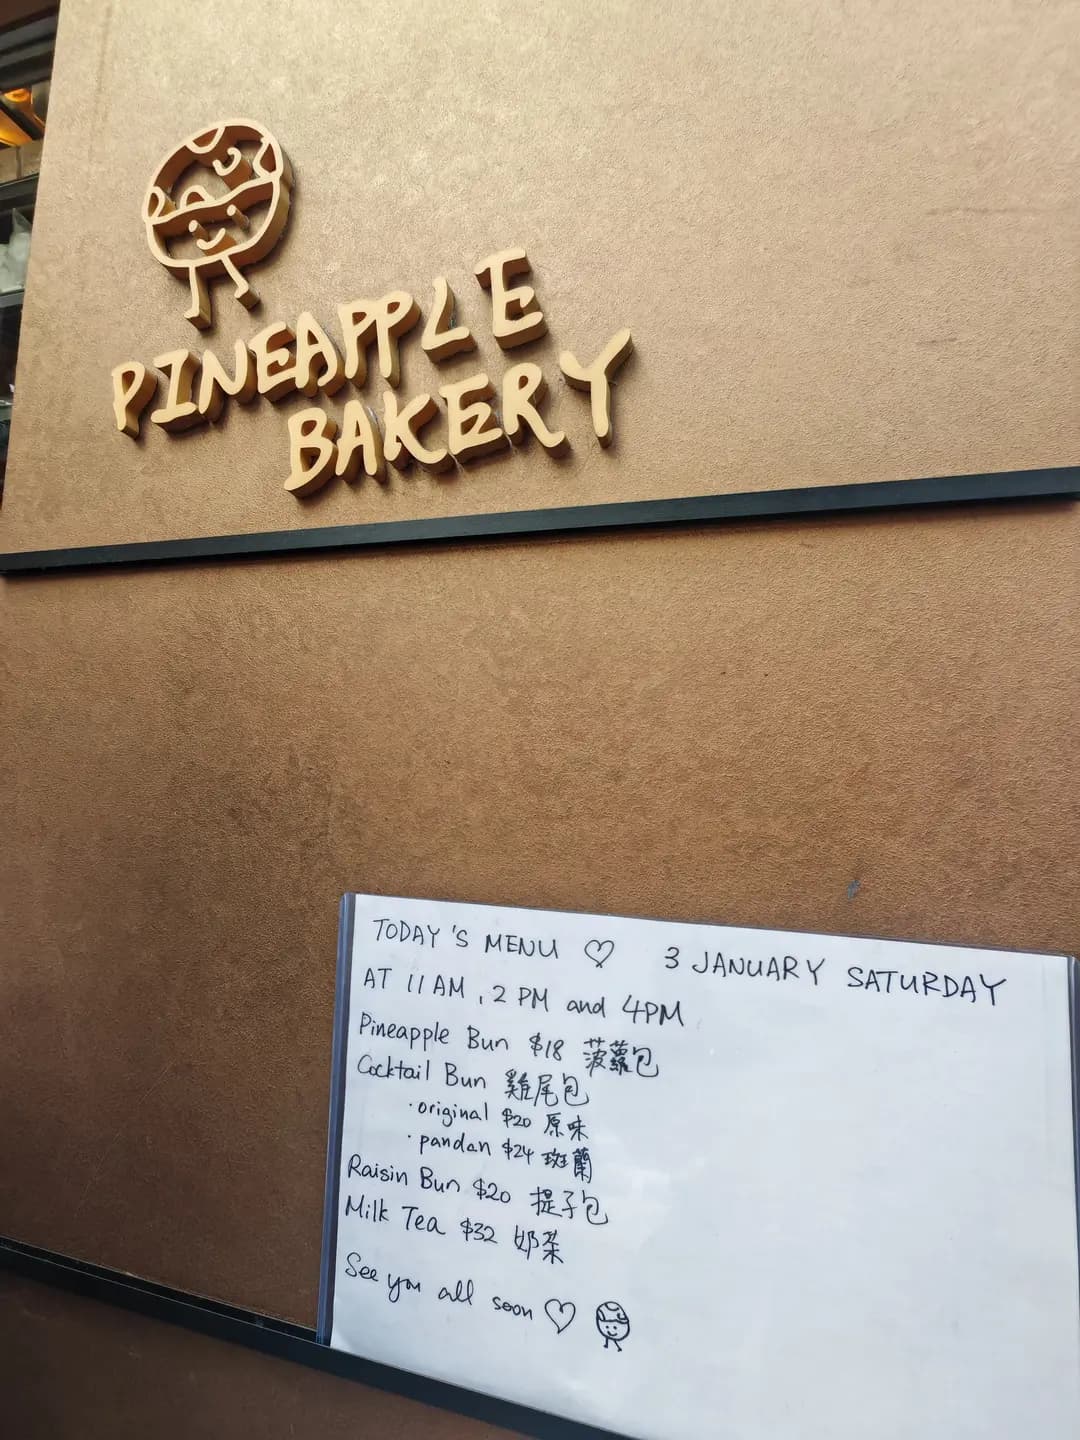 PINEAPPLE
BAKERY
TODAY'S MENU ♡ 3 JANUARY SATURDAY
AT 11 AM, 2 PM and 4PM
Pineapple Bun $18 菠蘿包
Cocktail Bun 雞尾包
·original $20 原味
·pandan $24 斑蘭
Raisin Bun $20 提子包
Milk Tea $32 奶茶
See you all soon ♡